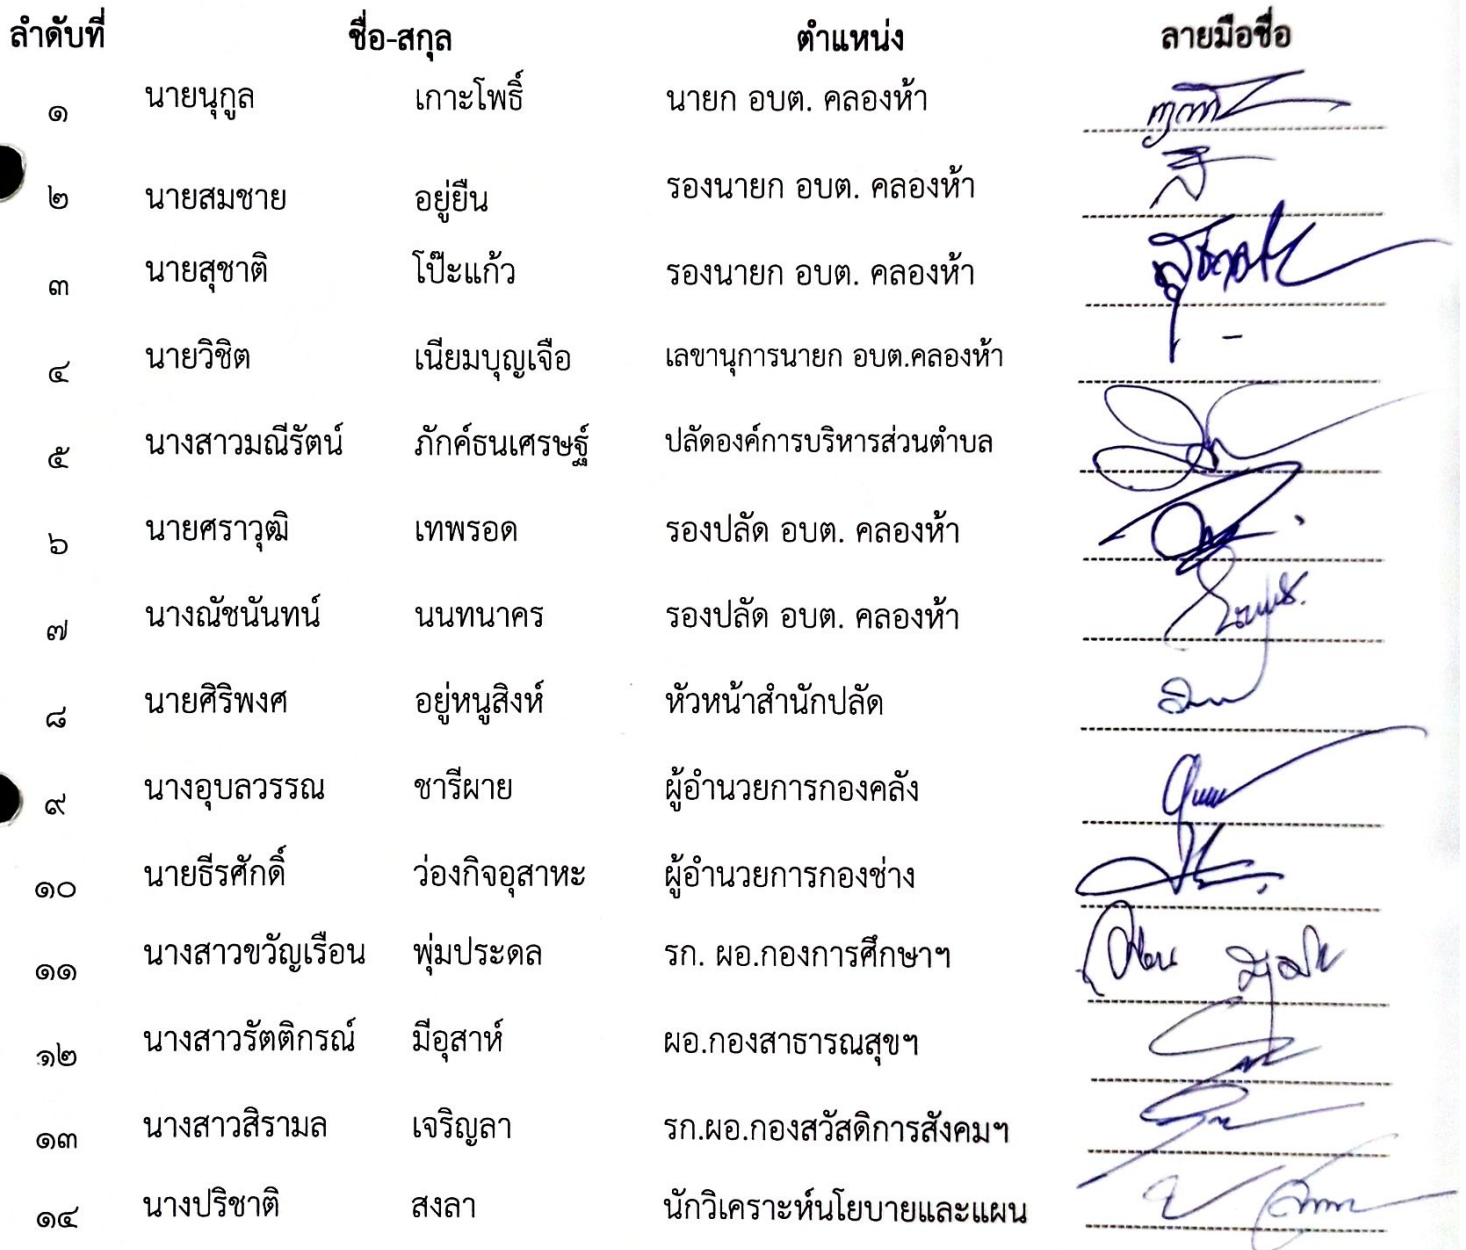 ลำดับที่ ชื่อ-สกุล ตำแหน่ง ลายมือชื่อ
๑ นายนุกูล เกาะโพธิ์ นายก อบต. คลองห้า
๒ นายสมชาย อยู่ยืน รองนายก อบต. คลองห้า
๓ นายสุชาติ โป๊ะแก้ว รองนายก อบต. คลองห้า
๔ นายวิชิต เนียมบุญเจือ เลขานุการนายก อบต.คลองห้า -
๕ นางสาวมณีรัตน์ ภักค์ธนเศรษฐ์ ปลัดองค์การบริหารส่วนตำบล
๖ นายศราวุฒิ เทพรอด รองปลัด อบต. คลองห้า
๗ นางณัชนันทน์ นนทนาคร รองปลัด อบต. คลองห้า
๘ นายศิริพงศ อยู่หนูสิงห์ หัวหน้าสำนักปลัด
๙ นางอุบลวรรณ ชารีผาย ผู้อำนวยการกองคลัง
๑๐ นายธีรศักดิ์ ว่องกิจอุสาหะ ผู้อำนวยการกองช่าง
๑๑ นางสาวขวัญเรือน พุ่มประดล รก. ผอ.กองการศึกษาฯ
๑๒ นางสาวรัตติกรณ์ มีอุสาห์ ผอ.กองสาธารณสุขฯ
๑๓ นางสาวสิรามล เจริญลา รก.ผอ.กองสวัสดิการสังคมฯ
๑๔ นางปริชาติ สงลา นักวิเคราะห์นโยบายและแผน